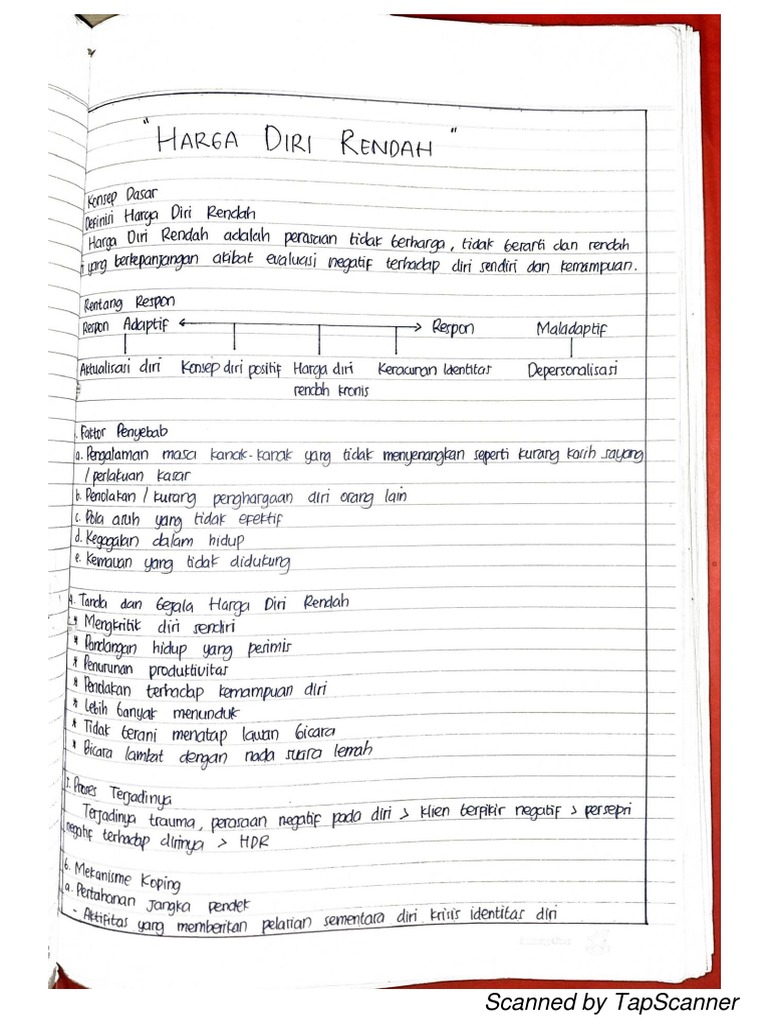 "HARGA DIRI RENDAH"
Konsep Dasar
Definisi Harga Diri Rendah
Harga Diri Rendah adalah perasaan tidak berharga, tidak berarti dan rendah
yang berkepanjangan akibat evaluasi negatif terhadap diri sendiri dan kemampuan.
Rentang Respon
Respon Adaptif Respon Maladaptif
Aktualisasi diri Konsep diri positif Harga diri Keracunan Identitas Depersonalisasi
rendah kronis
Faktor Penyebab
a. Pengalaman masa kanak-kanak yang tidak menyenangkan seperti kurang kasih sayang
/perlakuan kasar
b. Penolakan / kurang penghargaan diri orang lain
c. Pola asuh yang tidak efektif
d. Kegagalan dalam hidup
e. Kemauan yang tidak didukung
4. Tanda dan Gejala Harga Diri Rendah
* Mengkritik diri sendiri
* Pandangan hidup yang pesimis
* Penurunan produktivitas
* Penolakan terhadap kemampuan diri
* Lebih banyak menunduk
* Tidak berani menatap lawan bicara
* Bicara lambat dengan nada suara lemah
5. Proses Terjadinya
Terjadinya trauma, perasaan negatif pada diri > klien berpikir negatif > persepsi
negatif terhadap dirinya > HDR
6. Mekanisme Koping
a. Pertahanan jangka pendek
- Aktifitas yang memberikan pelarian sementara diri krisis identitas diri
Scanned by TapScanner